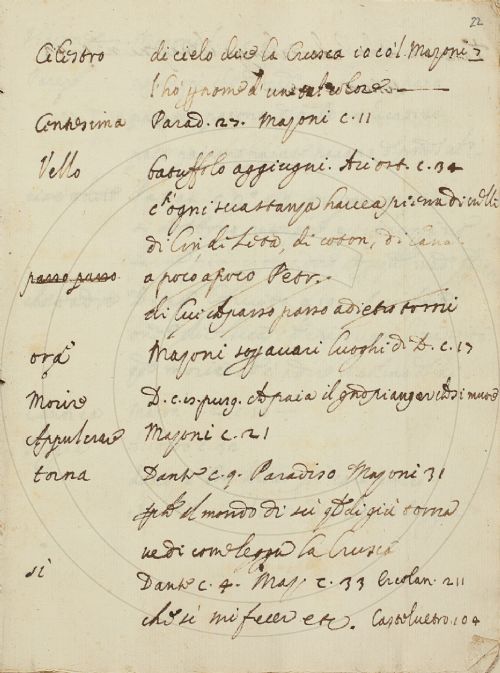 22
Cilestro di cielo dice la Crusca io co'l Mazoni
l'ho p nome d'un tal colore
Centesima Parad. 27. Mazoni c. 11
Vello batuffolo aggiugni. Ariost. c. 34
ch'ogni sua stanza havea piena di velli
di lin di seta, di coton, di lana
passo passo a poco a poco Petr.
di Cui passo passo a dietro torni
ora Mazoni sopra vari luoghi di D. c. 17
Morire D. c. purg. il piangendo si muore
Appulcrare Mazoni c. 21
torna Dante c. 9. Paradiso Mazoni 31
il mondo di sù qto di giù torna
vedi come legge la Crusca
sì Dante c. 4. Maz. c. 33 Ercolan. 211
che sì mi fecer etc. Castelvetro 104